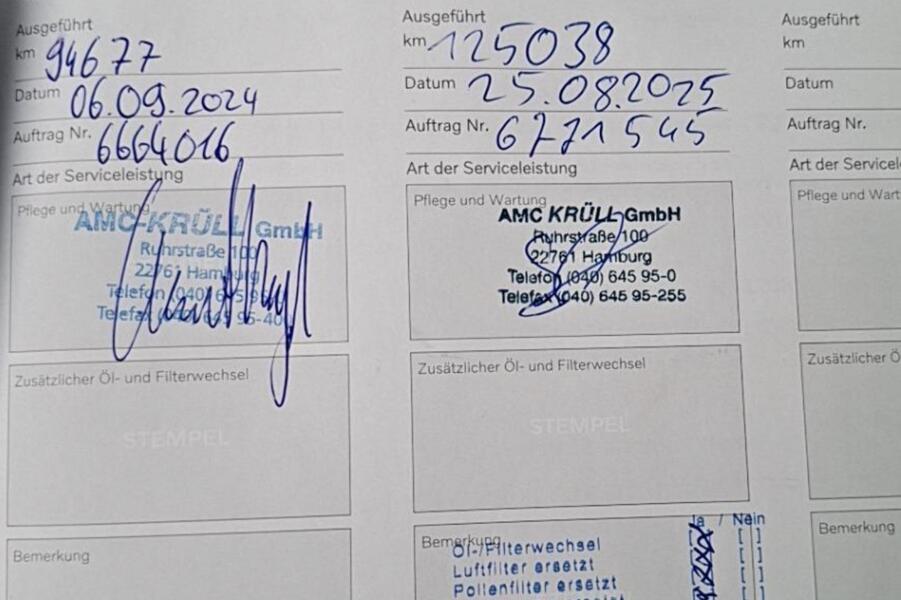 Ausgeführt
km 94677
Datum 06.09.2024
Auftrag Nr. 6664016
Art der Serviceleistung
Pflege und Wartung
AMC-KRÜLL GmbH
Ruhrstraße 100
22761 Hamburg
Telefon (040) 645 95-
Telefax (040) 645 95-40
Zusätzlicher Öl- und Filterwechsel
STEMPEL
Bemerkung
Ausgeführt
km 125038
Datum 25.08.2025
Auftrag Nr. 6771545
Art der Serviceleistung
Pflege und Wartung
AMC KRÜLL GmbH
Ruhrstraße 100
22761 Hamburg
Telefon (040) 645 95-0
Telefax (040) 645 95-255
Zusätzlicher Öl- und Filterwechsel
STEMPEL
Bemerkung
Ja / Nein
Öl-/Filterwechsel [X] [ ]
Luftfilter ersetzt [X] [ ]
Pollenfilter ersetzt [X] [ ]
Ausgeführt
km
Datum
Auftrag Nr.
Art der Servicel
Pflege und Wart
Zusätzlicher Ö
Bemerkung